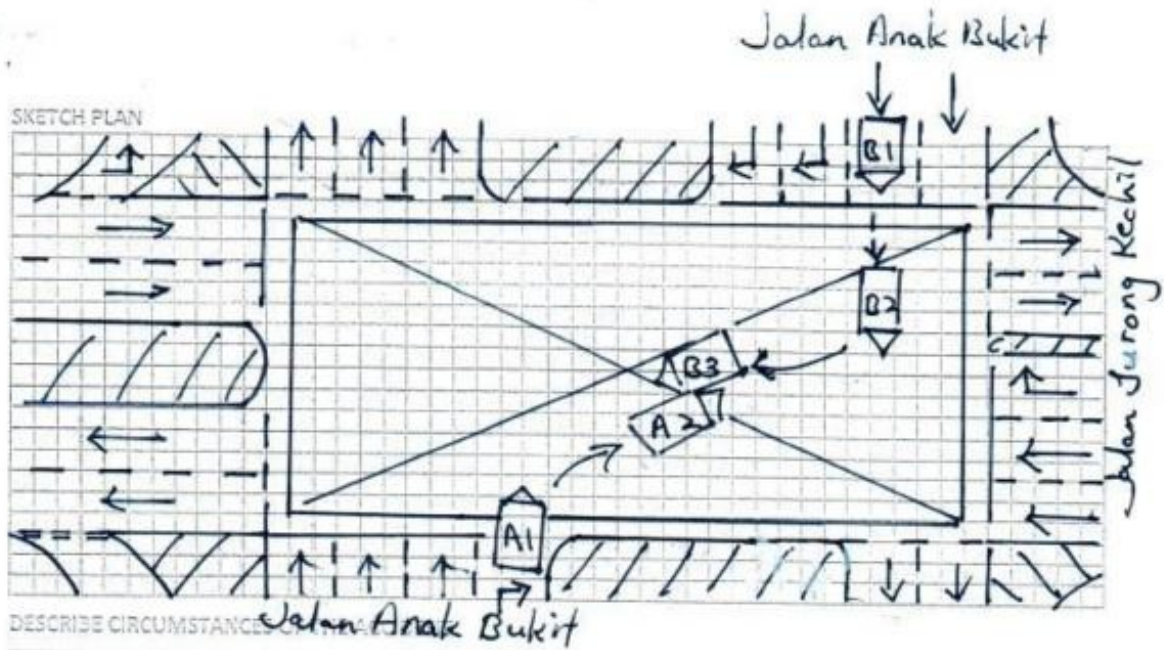 Jalan Anak Bukit
SKETCH PLAN
B1
B2
B3
A2
A1
Jalan Jurong Kechil
Jalan Anak Bukit
DESCRIBE CIRCUMSTANCES